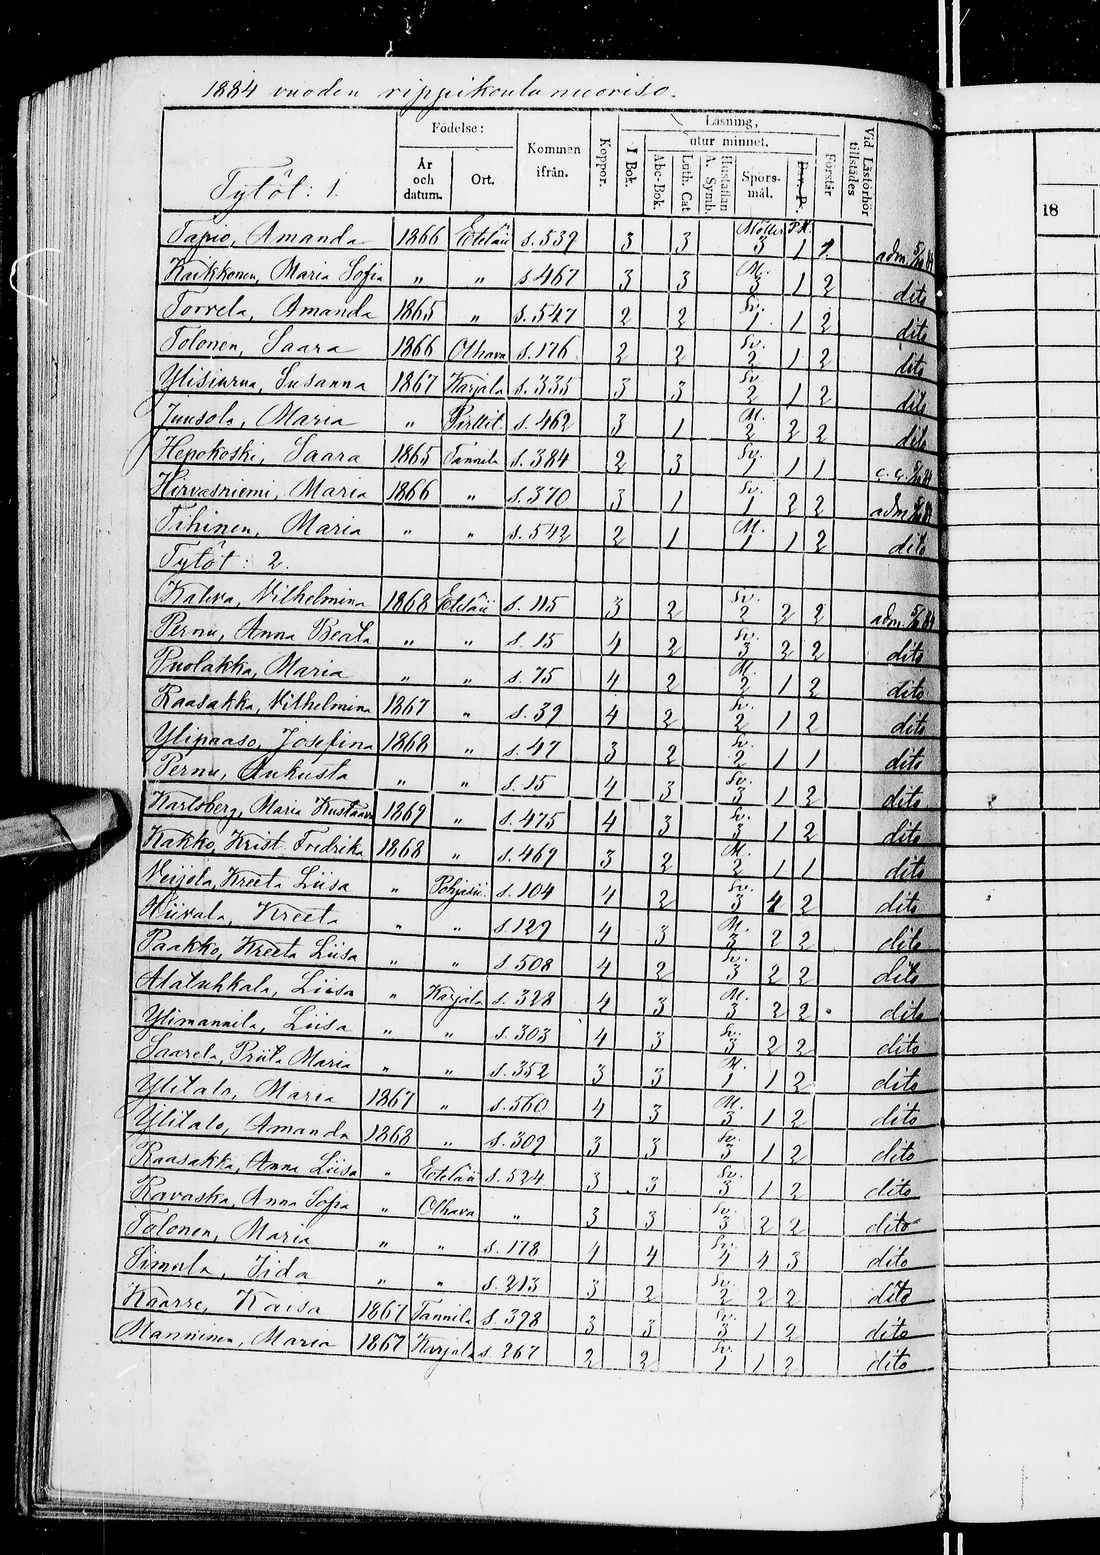 1884 vuoden rippikoulu nuoriso.
Födelse: Kommen ifrån. Koppor. Läsning, Förstår Vid Läsförhör tillstädes
I Bok. utur minnet.
År och datum. Ort. Abc-Bok. Luth. Cat Hustaflan A. Symb. Spörsmål. Dav. P.
Tytöt: 1.
18
Möller P.K.
Tapio, Amanda 1866 Eteläii s. 539 3 3 3 1 2 adm. 5/10 84
Kaikkonen, Maria Sofia „ „ s. 467 3 3 M. 3 1 2 dito
Torvela, Amanda 1865 „ s. 547 2 2 Sv. 1 1 2 dito
Tolonen, Saara 1866 Olhava s. 176 2 2 Sv. 2 1 2 dito
Ylisiurua, Susanna 1867 Karjala s. 335 3 3 Sv. 2 1 2 dito
Juusola, Maria „ Pirttit. s. 462 3 1 M. 2 2 2 dito
Hepokoski, Saara 1865 Tannila s. 384 2 3 Sv. 1 1 1
Hirvasniemi, Maria 1866 „ s. 370 3 1 Sv. 1 2 2 adm. 5/10 84
Tihinen, Maria „ „ s. 542 2 1 M. 1 1 2 dito
Tytöt: 2.
Kaleva, Vilhelmina 1868 Eteläii s. 115 3 2 Sv. 2 2 2 adm. 5/10 84
Pernu, Anna Beata „ „ s. 15 4 2 Sv. 3 2 2 dito
Puolakka, Maria „ „ s. 75 4 2 M. 2 1 2 dito
Raasakka, Vilhelmina 1867 „ s. 39 4 2 Sv. 2 1 2 dito
Ylipaaso, Josefina 1868 „ s. 47 3 2 Sv. 2 1 1 dito
Pernu, Aukusta „ „ s. 15 4 3 Sv. 3 1 2 dito
Karlsberg, Maria Kustaava 1869 „ s. 475 4 3 Sv. 3 1 2
Kakko, Krist. Fredrika 1868 „ s. 469 3 2 M. 2 1 1 dito
Veijola, Kreeta Liisa „ Pohjasii. s. 104 4 2 Sv. 3 4 2 dito
Hiivala, Kreeta „ „ s. 129 4 3 M. 3 2 2 dito
Paakko, Kreeta Liisa „ „ s. 508 4 2 Sv. 3 2 2 dito
Alaluhkala, Liisa „ Karjala s. 328 4 3 M. 3 2 2 dito
Ylimannila, Liisa „ „ s. 303 4 3 Sv. 3 2 2 dito
Saarela, Priita Maria „ „ s. 352 3 3 M. 1 1 2 dito
Ylitalo, Maria 1867 „ s. 560 4 3 M. 3 1 2 dito
Ylitalo, Amanda 1868 „ s. 309 3 3 Sv. 3 1 2 dito
Raasakka, Anna Liisa „ Eteläii s. 524 3 3 Sv. 3 1 2 dito
Ravaska, Anna Sofia „ Olhava „ 3 3 Sv. 3 2 2 dito
Tolonen, Maria „ „ s. 178 4 4 Sv. 4 4 3 dito
Simula, Iida „ „ s. 213 3 2 Sv. 2 2 2 dito
Kaarre, Kaisa 1867 Tannila s. 398 3 3 Sv. 3 1 2 dito
Manninen, Maria 1867 Karjala s. 267 2 2 Sv. 1 1 2 dito